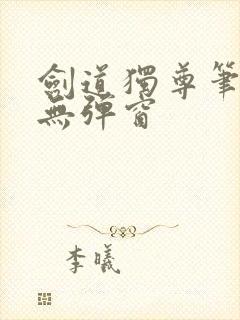 劍道獨尊筆
無彈窗
李曦